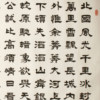 北國風光千里冰封
萬里雪飄望長城內
外惟餘莽莽大河上
下頓失滔滔山舞銀
蛇原馳蠟象欲與天
公試比高須晴日